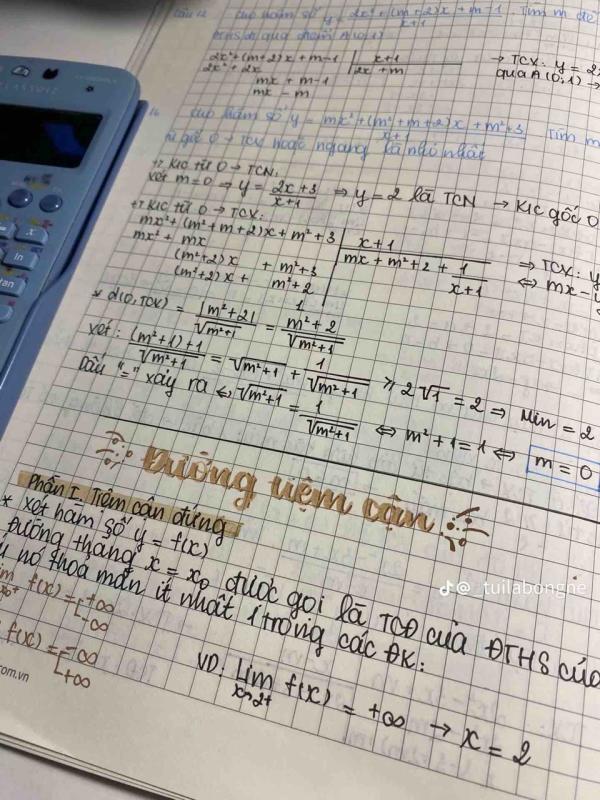 Câu 12 cho hàm số y = 2x² + (m+2)x + m-1 / x+1. Tìm m để
ĐTHS đi qua điểm A(0;1)
2x² + (m+2)x + m-1 | x+1
2x² + 2x | 2x + m
mx + m-1
mx - m
→ TCX: y = 2x
qua A (0;1) →
16 cho hàm số y = mx² + (m²+m+2)x + m²+3 / x+1. Tìm m
từ gốc O → TCX hoặc ngang là nhỏ nhất
+, K/c từ O → TCN:
xét m=0 → y = 2x+3 / x+1 ⇒ y = 2 là TCN → K/c gốc O
+, K/c từ O → TCX:
mx² + (m²+m+2)x + m²+3 | x+1
mx² + mx | mx + m²+2 + 1 / x+1
(m²+2)x + m²+3
(m²+2)x + m²+2
1
⇒ TCX: y
⇔ mx - y
* d(O,TCX) = |m²+2| / √m²+1 = m²+2 / √m²+1
xét: (m²+1)+1 / √m²+1 = √m²+1 + 1 / √m²+1 ≥ 2√1 = 2 ⇒ Min = 2
Dấu "=" xảy ra ⇔ √m²+1 = 1 / √m²+1 ⇔ m²+1 = 1 ⇔ m = 0
Đường tiệm cận
Phần I. Tiệm cận đứng
* Xét hàm số y = f(x)
Đường thẳng x = x₀ được gọi là TCĐ của ĐTHS của
nó thỏa mãn ít nhất 1 trong các ĐK:
f(x) = [+∞
-∞
f(x) = [-∞
+∞
VD: lim x→2+ f(x) = +∞ → x = 2
@_tuilabongne
om.vn
CLASSWIZ
x
ln
tan